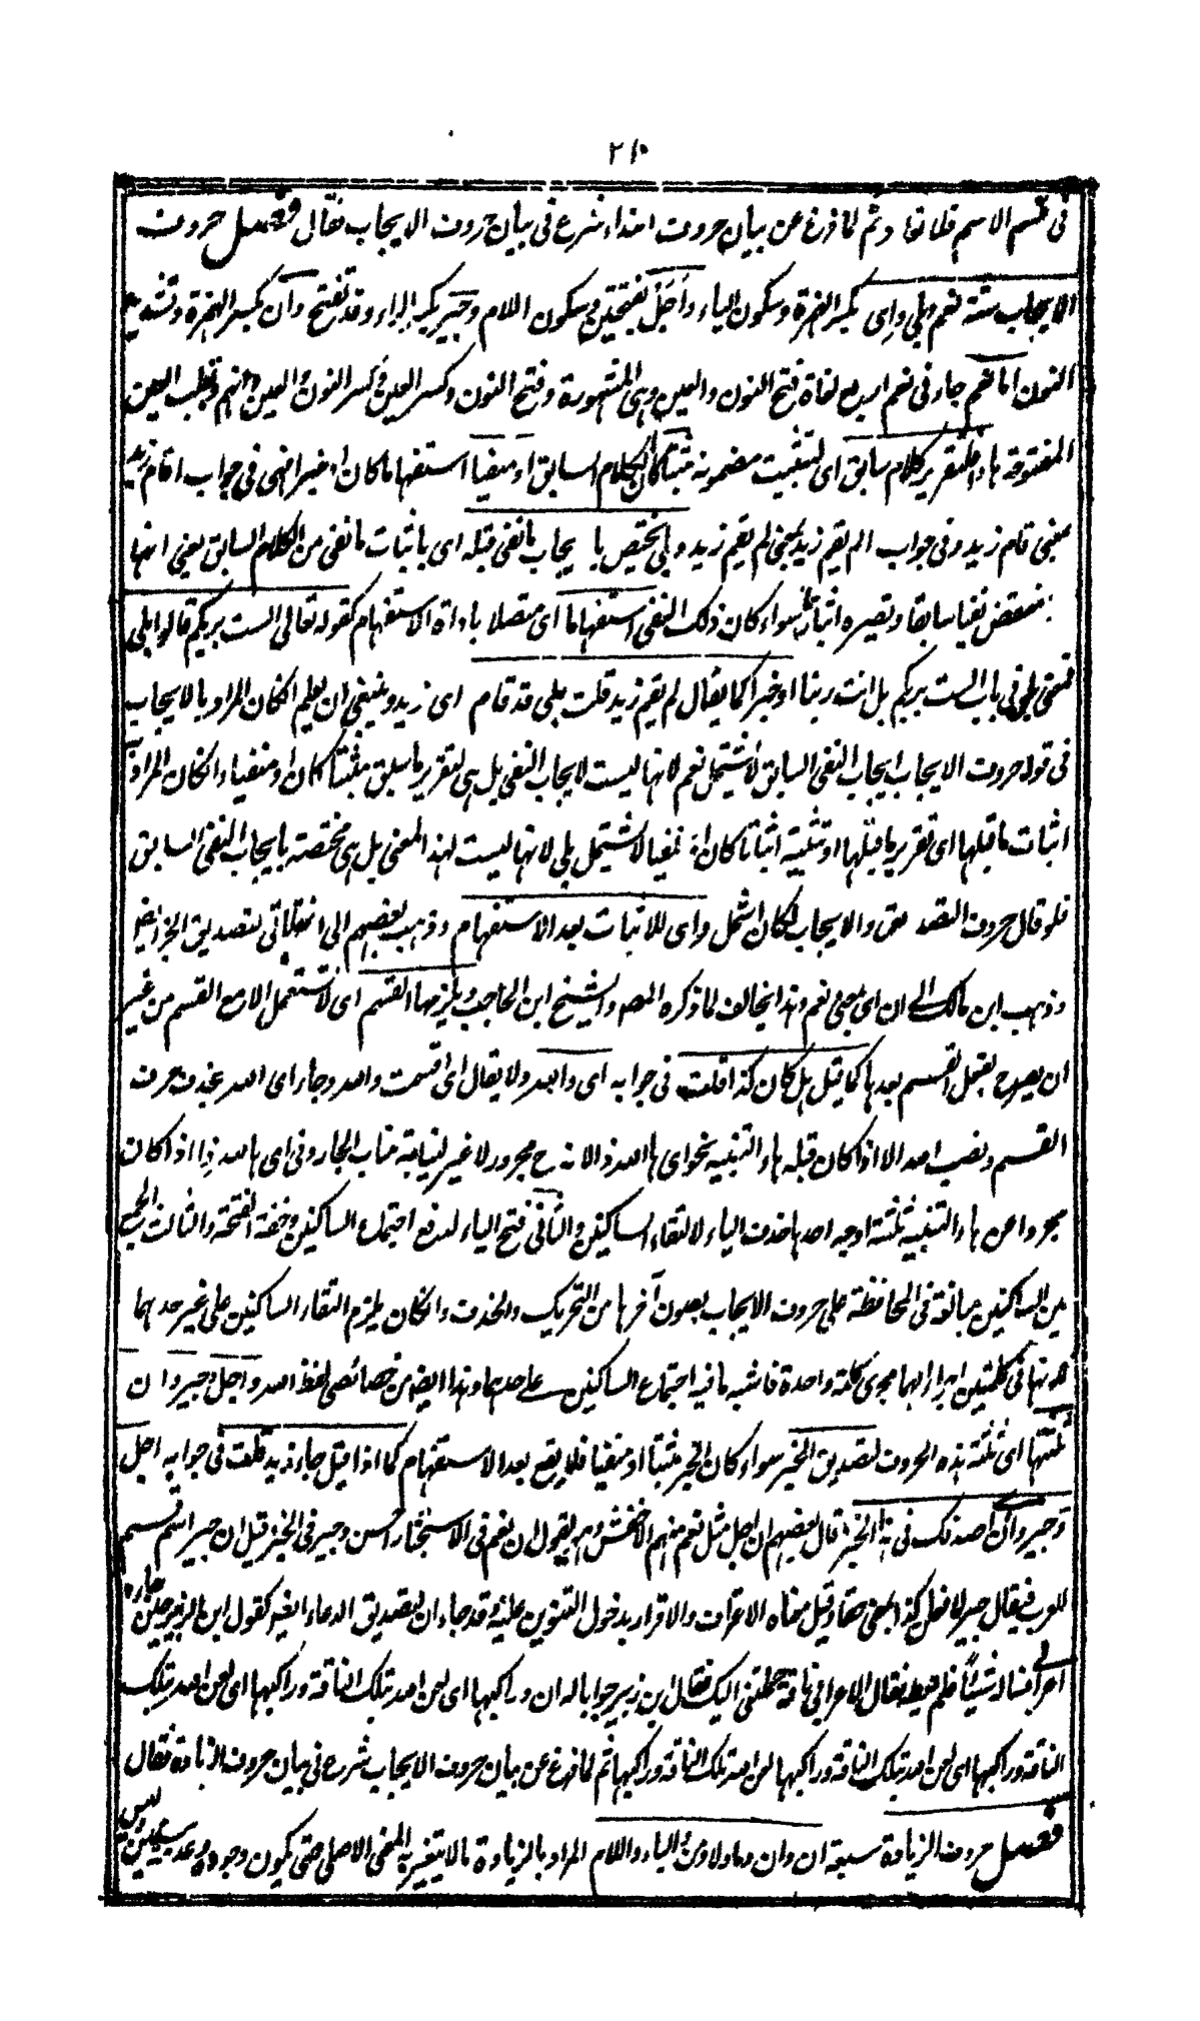 ٢١٠
فى قسم الاسم فلا نعا د ثم لما فرغ عن بيان حروف النداء شرع فى بيان حروف الايجاب فقال فصل حروف
الايجاب ستة نعم وبلى واى بكسر الهمزة وسكون الياء واجل بفتحتين وسكون اللام وجير بكسر الراء وقد تفتح وان بكسر الهمزة وتشديد
النون اما نعم جاء فى نعم اربع لغات فتح النون والعين وهى المشهورة وفتح النون وكسر العين وكسر النون والعين وقلب العين
المفتوحة هاء فلتقرير كلام سابق اى لتثبيت مضمونه مثبتا كان الكلام السابق او منفيا استفهاما كان او خبرا فهى فى جواب اقام زيد
بمعنى قام زيد وفى جواب الم يقم زيد بمعنى لم يقم زيد وبلى تختص بايجاب ما نفى قبله اى باثبات ما نفى من الكلام السابق يعنى انها
تنقض نفيا سابقا وتصيره اثباتا سواء كان ذلك النفى استفهاما اى متصلا باداة الاستفهام كقوله تعالى الست بربكم قالوا بلى
فمعنى بلى فى باب الست بربكم بل انت ربنا او خبرا كما يقال لم يقم زيد قلت بلى قد قام اى زيد وينبغى ان يعلم ان كان المراد بالايجاب
فى قوله حروف الايجاب ايجاب النفى السابق لا يشتمل نعم لانها ليست لايجاب النفى بل هى لتقرير ما سبق مثبتا كان او منفيا وان كان المراد
اثبات ما قبلها اى تقرير ما قبلها او تثبيته اثباتا كان او نفيا لا يشتمل بلى لانها ليست لهذا المعنى بل هى مختصة بايجاب النفى السابق
فلو قال حروف التصديق والايجاب لكان اشمل واى للاثبات بعد الاستفهام وذهب بعضهم الى انها تاتى لتصديق الخبر ايضا
وذهب ابن مالك الى ان اى بمعنى نعم وهذا يخالف لما ذكره المصنف والشيخ ابن الحاجب ويلزمها القسم اى لا تستعمل الا مع القسم من غير
ان يصرح بفعل القسم بعدها كما قيل هل كان كذا قلت فى جوابه اى والله ولا يقال اى اقسمت والله وجاء اى الله بحذف حرف
القسم ونصب الله الا اذا كان قبله هاء التنبيه نحو اى ها الله ذا لانه ح مجرور لا غير لنيابته مناب الجار وفى اى ها الله ذا اذا كان
مجردا من هاء التنبيه ثلثة اوجه احدها حذف الياء لالتقاء الساكنين والثانى فتح الياء لدفع اجتماع الساكنين وخفة الفتحة والثالث الجمع
بين الساكنين مبالغة فى المحافظة على حروف الايجاب بصون آخرها من التحريك والحذف وان كان يلزم التقاء الساكنين على غير حدهما
لانهما فى كلمتين اجراء لهما مجرى كلمة واحدة فاشبه ما فيه اجتماع الساكنين على حدهما وهذا ايضا من خصائص لفظ الله واجل وجير وان
ثلثتها اى ثلثة هذه الحروف لتصديق الخبر سواء كان الخبر مثبتا او منفيا فلا يقع بعد الاستفهام كما اذا قيل جاء زيد قلت فى جوابه اجل
وجير وان اصدقك فى هذا الخبر قال بعضهم ان اجل مثل نعم منهم الاخفش وهو يقول ان نعم فى الاستخبار احسن وجير فى الخبر قيل ان جير اسم قسم
للعرب فيقال جير لا فعلن كذا بمعنى حقا وقيل معناه الاعتراف والاقرار بدخول التنوين عليه وقد جاء ان لتصديق الدعاء ايضا كقول ابن الزبير حين جاءه
اعرابى فساله شيئا فلم يعطه فقال الاعرابى لعن الله ناقة حملتنى اليك فقال ابن زبير جوابا له ان وراكبها اى لعن الله تلك الناقة وراكبها اى لعن الله تلك
الناقة وراكبها ثم لما فرغ عن بيان حروف الايجاب شرع فى بيان حروف الزيادة فقال
فصل حروف الزيادة سبعة ان وان وما ولا ومن والباء واللام المراد بالزيادة ما لا يتغير به المعنى الاصلى حتى يكون وجوده وعدمه سيين وليس